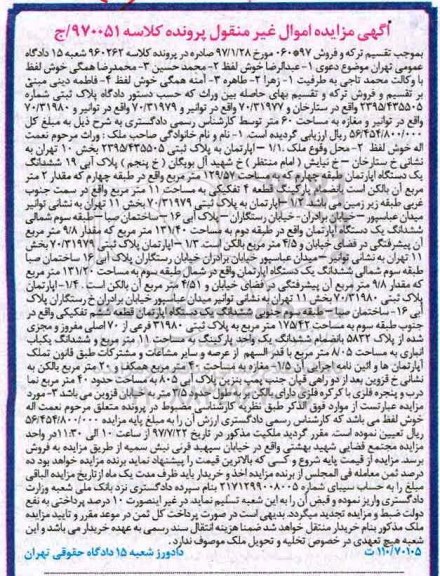 آگهی مزایده اموال غیر منقول پرونده کلاسه ۹۷۰۰۵۱/ج
بموجب تقسیم ترکه و فروش ۹۷*۰۶۰۰ مورخ ۹۷/۱/۲۸ صادره در پرونده کلاسه ۹۶۰۲۶۲ شعبه ۱۵ دادگاه
عمومی تهران موضوع دعوی ۱-عبدالرضا خوش لفظ ۲- محمد حسین ۳-محمدرضا همگی خوش لفظ
با وکالت محمد تاجی به طرفیت ۱- زهرا ۲- طاهره ۳- آمنه همگی خوش لفظ ۴- فاطمه دینی مبنی
بر تقسیم و فروش ترکه و تقسیم بهای حاصله بین وراث که حسب دستور دادگاه پلاک ثبتی شماره
۲۳۹۵/۴۳۵۵۰۵ واقع در ستارخان و ۷۰/۳۱۹۷۷ واقع در توانیر و ۷۰/۳۱۹۷۹ واقع در توانیر و ۷۰/۳۱۹۸۰
واقع در توانیر و مغازه به مساحت ۶۰ متر توسط کارشناس رسمی دادگستری به شرح ذیل به مبلغ کل
۵۶/۴۵۴/۸۰۰/۰۰۰ ریال ارزیابی گردیده است. ۱- نام و نام خانوادگی صاحب ملک : وراث مرحوم نعمت
اله خوش لفظ ۲-محل وقوع ملک ۱/۱- آپارتمان به پلاک ثبتی ۲۳۹۵/۴۳۵۵۰۵ بخش ۱۰ تهران به
نشانی خ ستارخان – خ نیایش ( امام منتظر ) خ شهید آل بویگان ( خ پنجم ) پلاک آبی ۱۹ ششدانگ
یک دستگاه آپارتمان طبقه چهارم که به مساحت ۱۲۹/۵۷ متر مربع واقع در طبقه چهارم که مقدار ۲ متر
مربع آن بالکن است . بانضمام پارکینگ قطعه ۴ تفکیکی به مساحت ۱۱ متر مربع واقع در سمت جنوب
غربی طبقه زیر زمین است ۱/۲ -آپارتمان به پلاک ثبتی ۷۰/۳۱۹۷۹ بخش ۱۱ تهران به نشانی توانیر
میدان عباسپور – خیابان برادران- خیابان رستگاران – پلاک آبی ۱۶ – ساختمان صبا – طبقه سوم شمالی
ششدانگ یک دستگاه آپارتمان واقع در طبقه دوم به مساحت ۱۳۱/۴۰ متر مربع که مقدار ۹/۸ متر مربع
آن پیشرفتگی در فضای خیابان و ۴/۵ متر مربع بالکن است. ۱/۳ -آپارتمان پلاک ثبتی ۷۰/۳۱۹۷۹ بخش
۱۱ تهران به نشانی توانیر –میدان عباسپور خیابان برادران خیابان رستگاران پلاک آبی ۱۶ ساختمان صبا
طبقه سوم شمالی ششدانگ یک دستگاه آپارتمان واقع در شمال طبقه سوم به مساحت ۱۳۱/۲۰ متر مربع
که مقدار ۹/۸ متر مربع آن پیشرفتگی در فضای خیابان و ۴/۵۱ متر مربع آن بالکن است . ۱/۴-آپارتمان
پلاک ثبتی ۷۰/۳۱۹۸۰ بخش ۱۱ تهران به نشانی توانیر میدان عباسپور خیابان برادران خ رستگاران پلاک
آبی ۱۶- ساختمان صبا – طبقه سوم جنوبی ششدانگ یک دستگاه آپارتمان قطعه ششم تفکیکی واقع در
جنوب طبقه سوم به مساحت ۱۷۵/۴۲ متر مربع به پلاک ثبتی ۳۱۹۸۰ فرعی از ۷۰ اصلی مفروز و مجزی
شده از پلاک ۵۸۳۲ بانضمام ششدانگ یک واحد پارکینگ به مساحت ۱۱ متر مربع و ششدانگ یکباب
انباری به مساحت ۸۰۵ متر مربع با قدر السهم از عرصه و سایر مشاعات و مشترکات طبق قانون تملک
آپارتمان ها و آئین نامه اجرایی آن ۱/۵- مغازه به مساحت ۴۰ متر مربع همکف و ۲۰ متر مربع بالکن به
نشانی خ قزوین بعد از دو راهی قپان جنب پمپ بنزین پلاک آبی ۸۰۵ به مساحت حدود ۴۰ متر مربع نما
درب و پنجره فلزی با کرکره فلزی دارای بالکن و به طول حدود ۷/۵ متر به خیابان قزوین می باشد ۳- مورد
مزایده عبارتست از موارد فوق الذکر طبق نظریه کارشناسی مضبوط در پرونده متعلق مرحوم نعمت اله
خوش لفظ می باشد که کارشناس رسمی دادگستری ارزش آن را به مبلغ پایه مزایده ۵۶/۴۵۴/۸۰۰/۰۰۰
ریال تعیین نموده است. مقرر گردید ملکیت مذکور در تاریخ ۹۷/۷/۲۲ از ساعت ۱۰ الی ۱۱:۳۰در واحد
مزایده مجتمع قضایی شهید بهشتی واقع در خیابان سپهبد قرنی نبش سمیه از طریق مزایده به فروش
برسد. مزایده از قیمت پایه شروع و کسی که بالاترین قیمت را پیشنهاد نماید برنده مزایده خواهد بود ده
درصد ثمن معامله فی المجلس از برنده مزایده اخذ و خریدار باید ظرف مدت یک ماه از تاریخ مزایده الباقی
مبلغ را به حساب سیبای شماره ۲۱۷۱۲۹۹۰۰۸۰۰۵ بنام سپرده دادگستری نزد بانک ملی شعبه وزارت
دادگستری واریز نموده و قبض آن را به این شعبه تسلیم نماید. در غیر اینصورت ۱۰ درصد پرداختی به نفع
دولت ضبط و مزایده تجدید میگردد. بدیهی است در صورت پرداخت کل ثمن در موعد مقرر و تایید مزایده
ملک مذکور بنام خریدار منتقل خواهد شد ضمنا هزینه انتقال سند رسمی به عهده خریدار می باشد و این
شعبه هیچ تعهدی در خصوص تخلیه و تحویل ملک موصوف ندارد .
۱۱۰/۷۰۱۰۵ ت
دادورز شعبه ۱۵ دادگاه حقوقی تهران